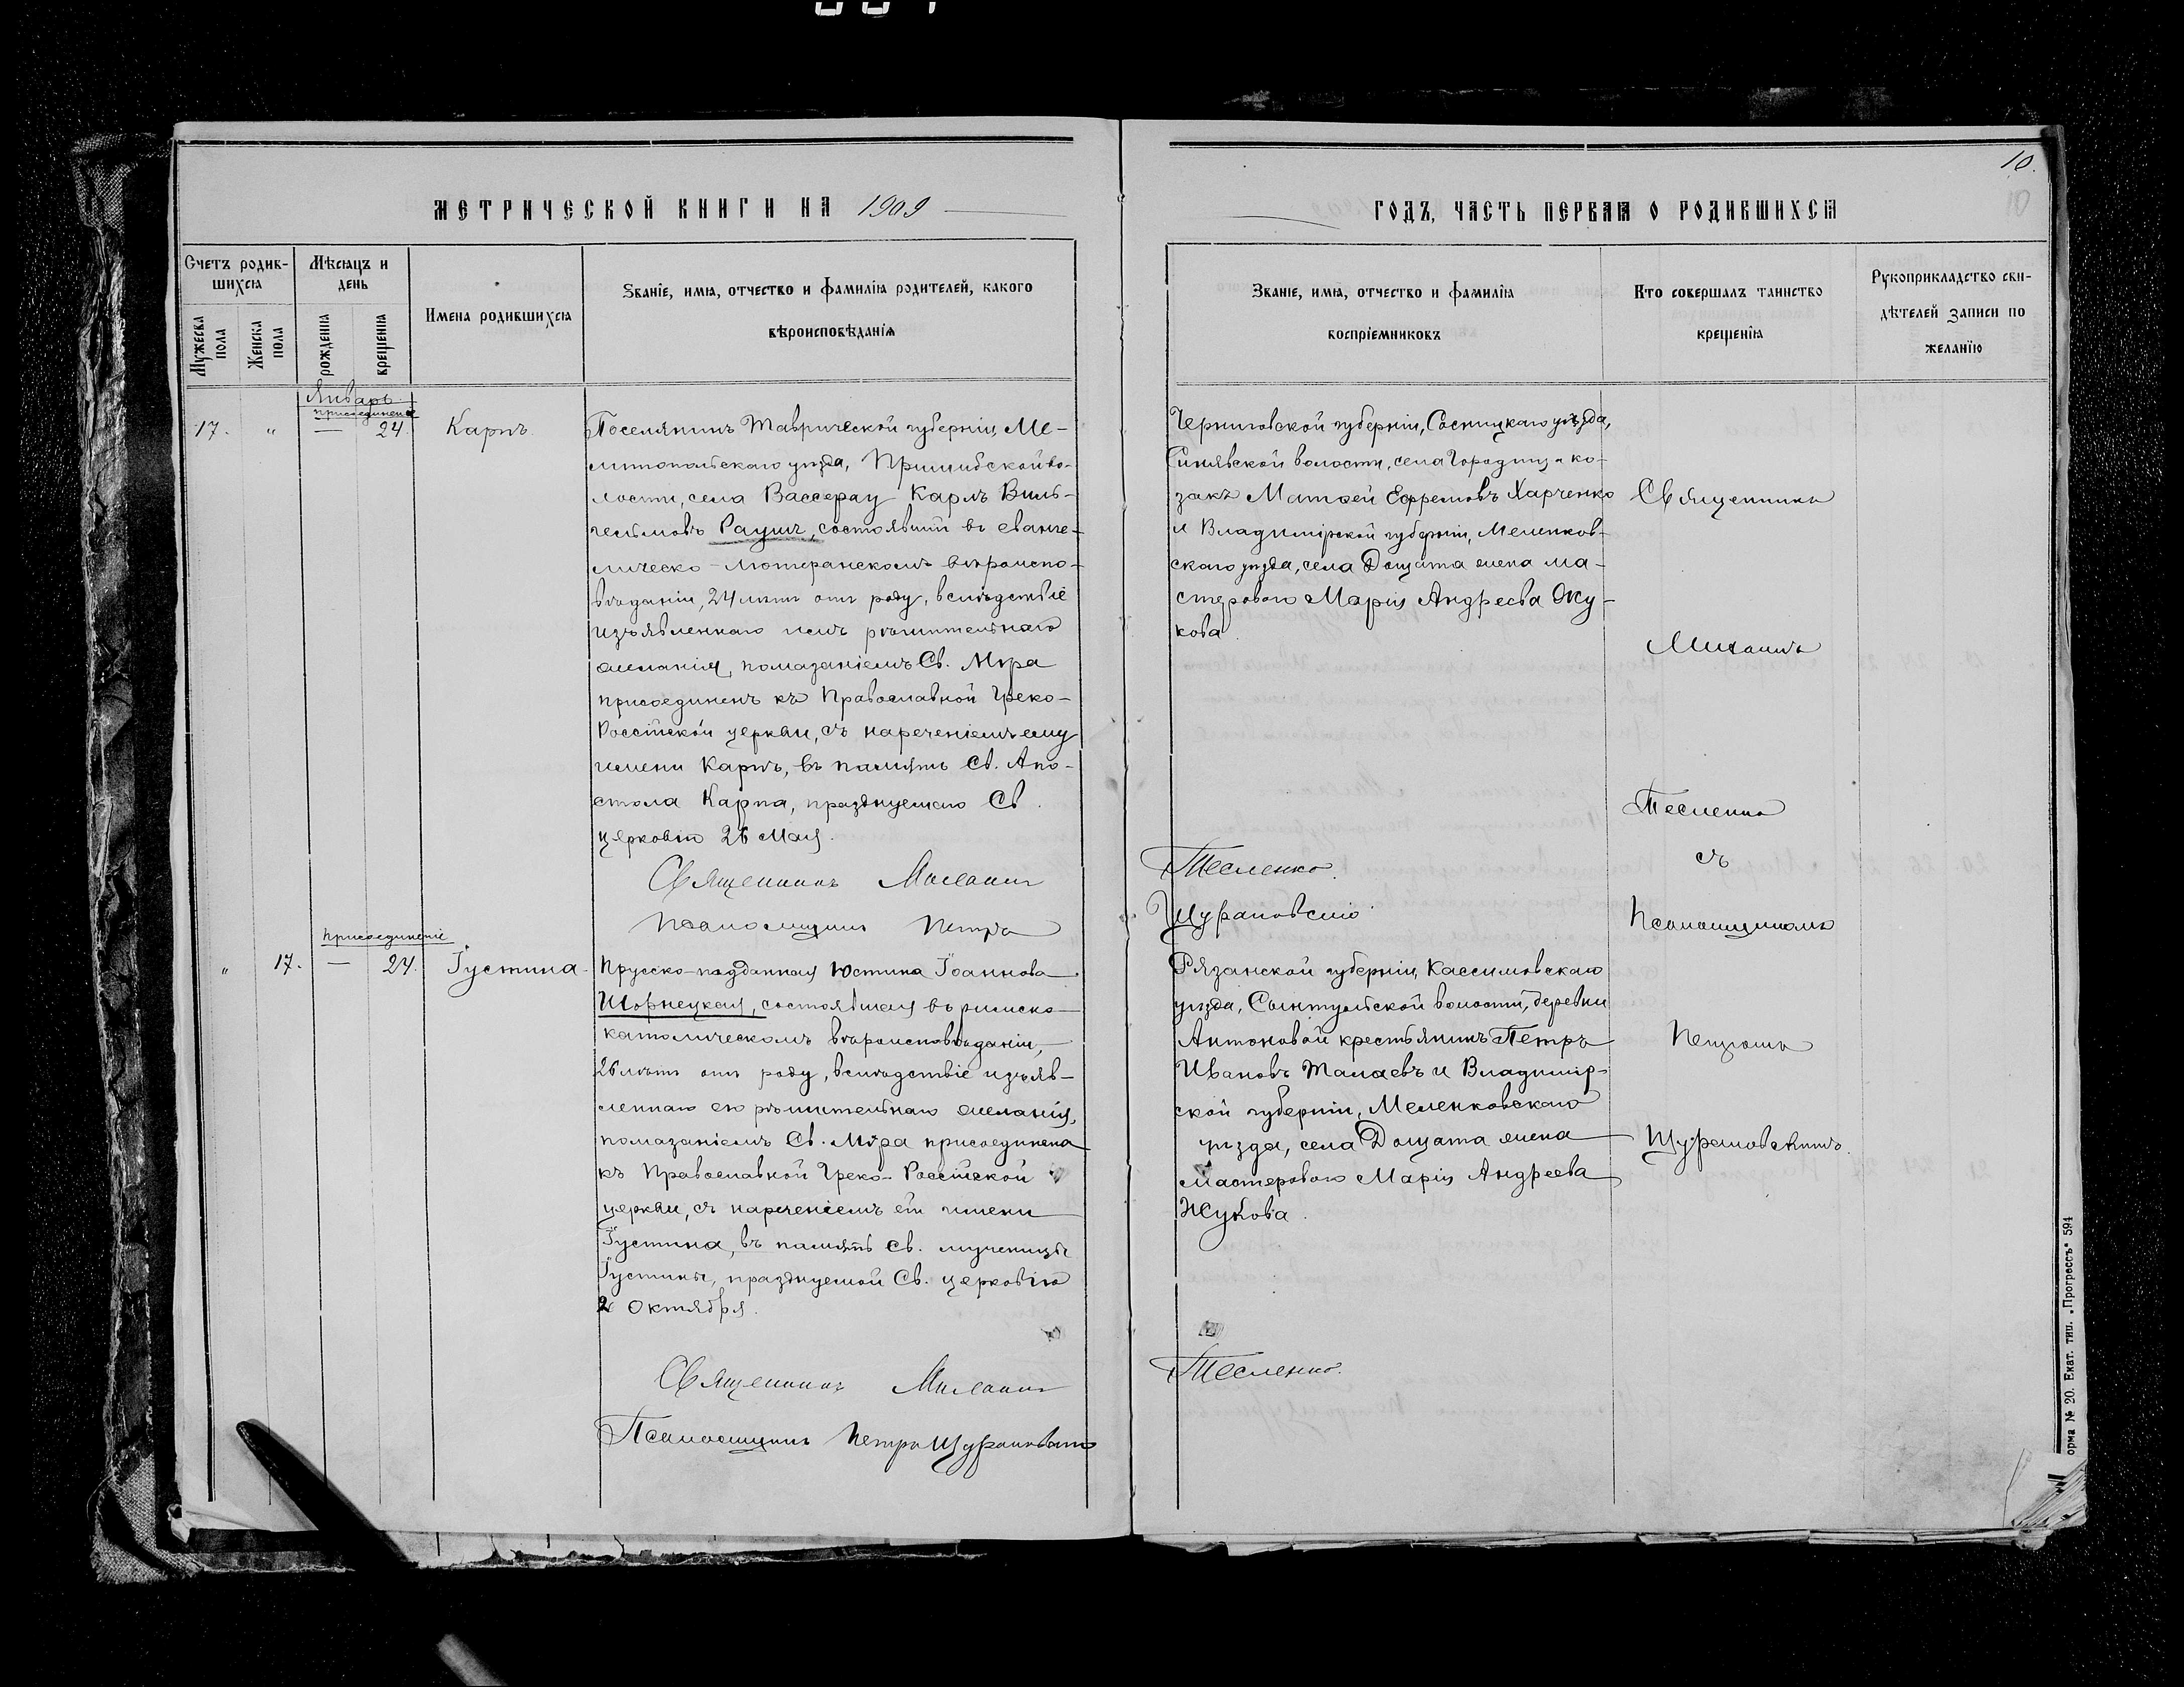 10.
10
МЕТРИЧЕСКОЙ КНИГИ НА 1909
ГОДЪ, ЧАСТЬ ПЕРВАЯ О РОДИВШИХСЯ
Счетъ родив-
шихся
Мужеска пола
Женска пола
Мѣсяцъ и
день
рожденія
крещенія
Имена родившихся
Званіе, имя, отчество и фамилія родителей, какого
вѣроисповѣданія
Званіе, имя, отчество и фамилія
воспріемниковъ
Кто совершалъ таинство
крещенія
Рукоприкладство сви-
дѣтелей записи по
желанію
Январь.
присоединеніе
17. " — 24. Карпъ.
Поселянинъ Таврической губерніи, Ме-
литопольскаго уѣзда, Пришибской во-
лости, села Вассерау Карлъ Виль-
гельмовъ Раушъ, состоявшій въ еванге-
лическо-лютеранскомъ вѣроиспо-
вѣданіи, 24 лѣтъ отъ роду, вслѣдствіе
изъявленнаго имъ рѣшительнаго
желанія, помазаніемъ Св. Мѵра
присоединенъ къ Православной Греко-
Россійской церкви, съ нареченіемъ ему
имени Карпъ, въ память Св. Апо-
стола Карпа, празднуемаго Св.
церковію 26 Мая.
Священникъ Михаилъ
Тесленко.
Псаломщикъ Петръ
Щурановскій
Черниговской губерніи, Сосницкаго уѣзда,
Синявской волости, села Городища ко-
закъ Матѳей Ефремовъ Харченко
и Владимірской губерніи, Меленков-
скаго уѣзда, села Дощата жена ма-
стероваго Марія Андреева Жу-
кова.
Священникъ
Михаилъ
Тесленко
съ
Псаломщикомъ
Петромъ
Щурановскимъ.
присоединеніе
" 17. — 24. Іустина.
Прусско-подданная Юстина Іоаннова
Шорнецкая, состоявшая въ римско-
католическомъ вѣроисповѣданіи,
26 лѣтъ отъ роду, вслѣдствіе изъяв-
леннаго ею рѣшительнаго желанія,
помазаніемъ Св. Мѵра присоединена
къ Православной Греко-Россійской
церкви, съ нареченіемъ ей имени
Іустина, въ память Св. мученицы
Іустины, празднуемой Св. церковію
2 Октября.
Священникъ Михаилъ
Тесленко.
Псаломщикъ Петръ Щурановскій
Рязанской губерніи, Кассимовскаго
уѣзда, Сынтульской волости, деревни
Антоновой крестьянинъ Петръ
Ивановъ Талаевъ и Владимір-
ской губерніи, Меленковскаго
уѣзда, села Дощата жена
мастероваго Марія Андреева
Жукова.
орма № 20. Екат. тип. „Прогрессъ“ 594